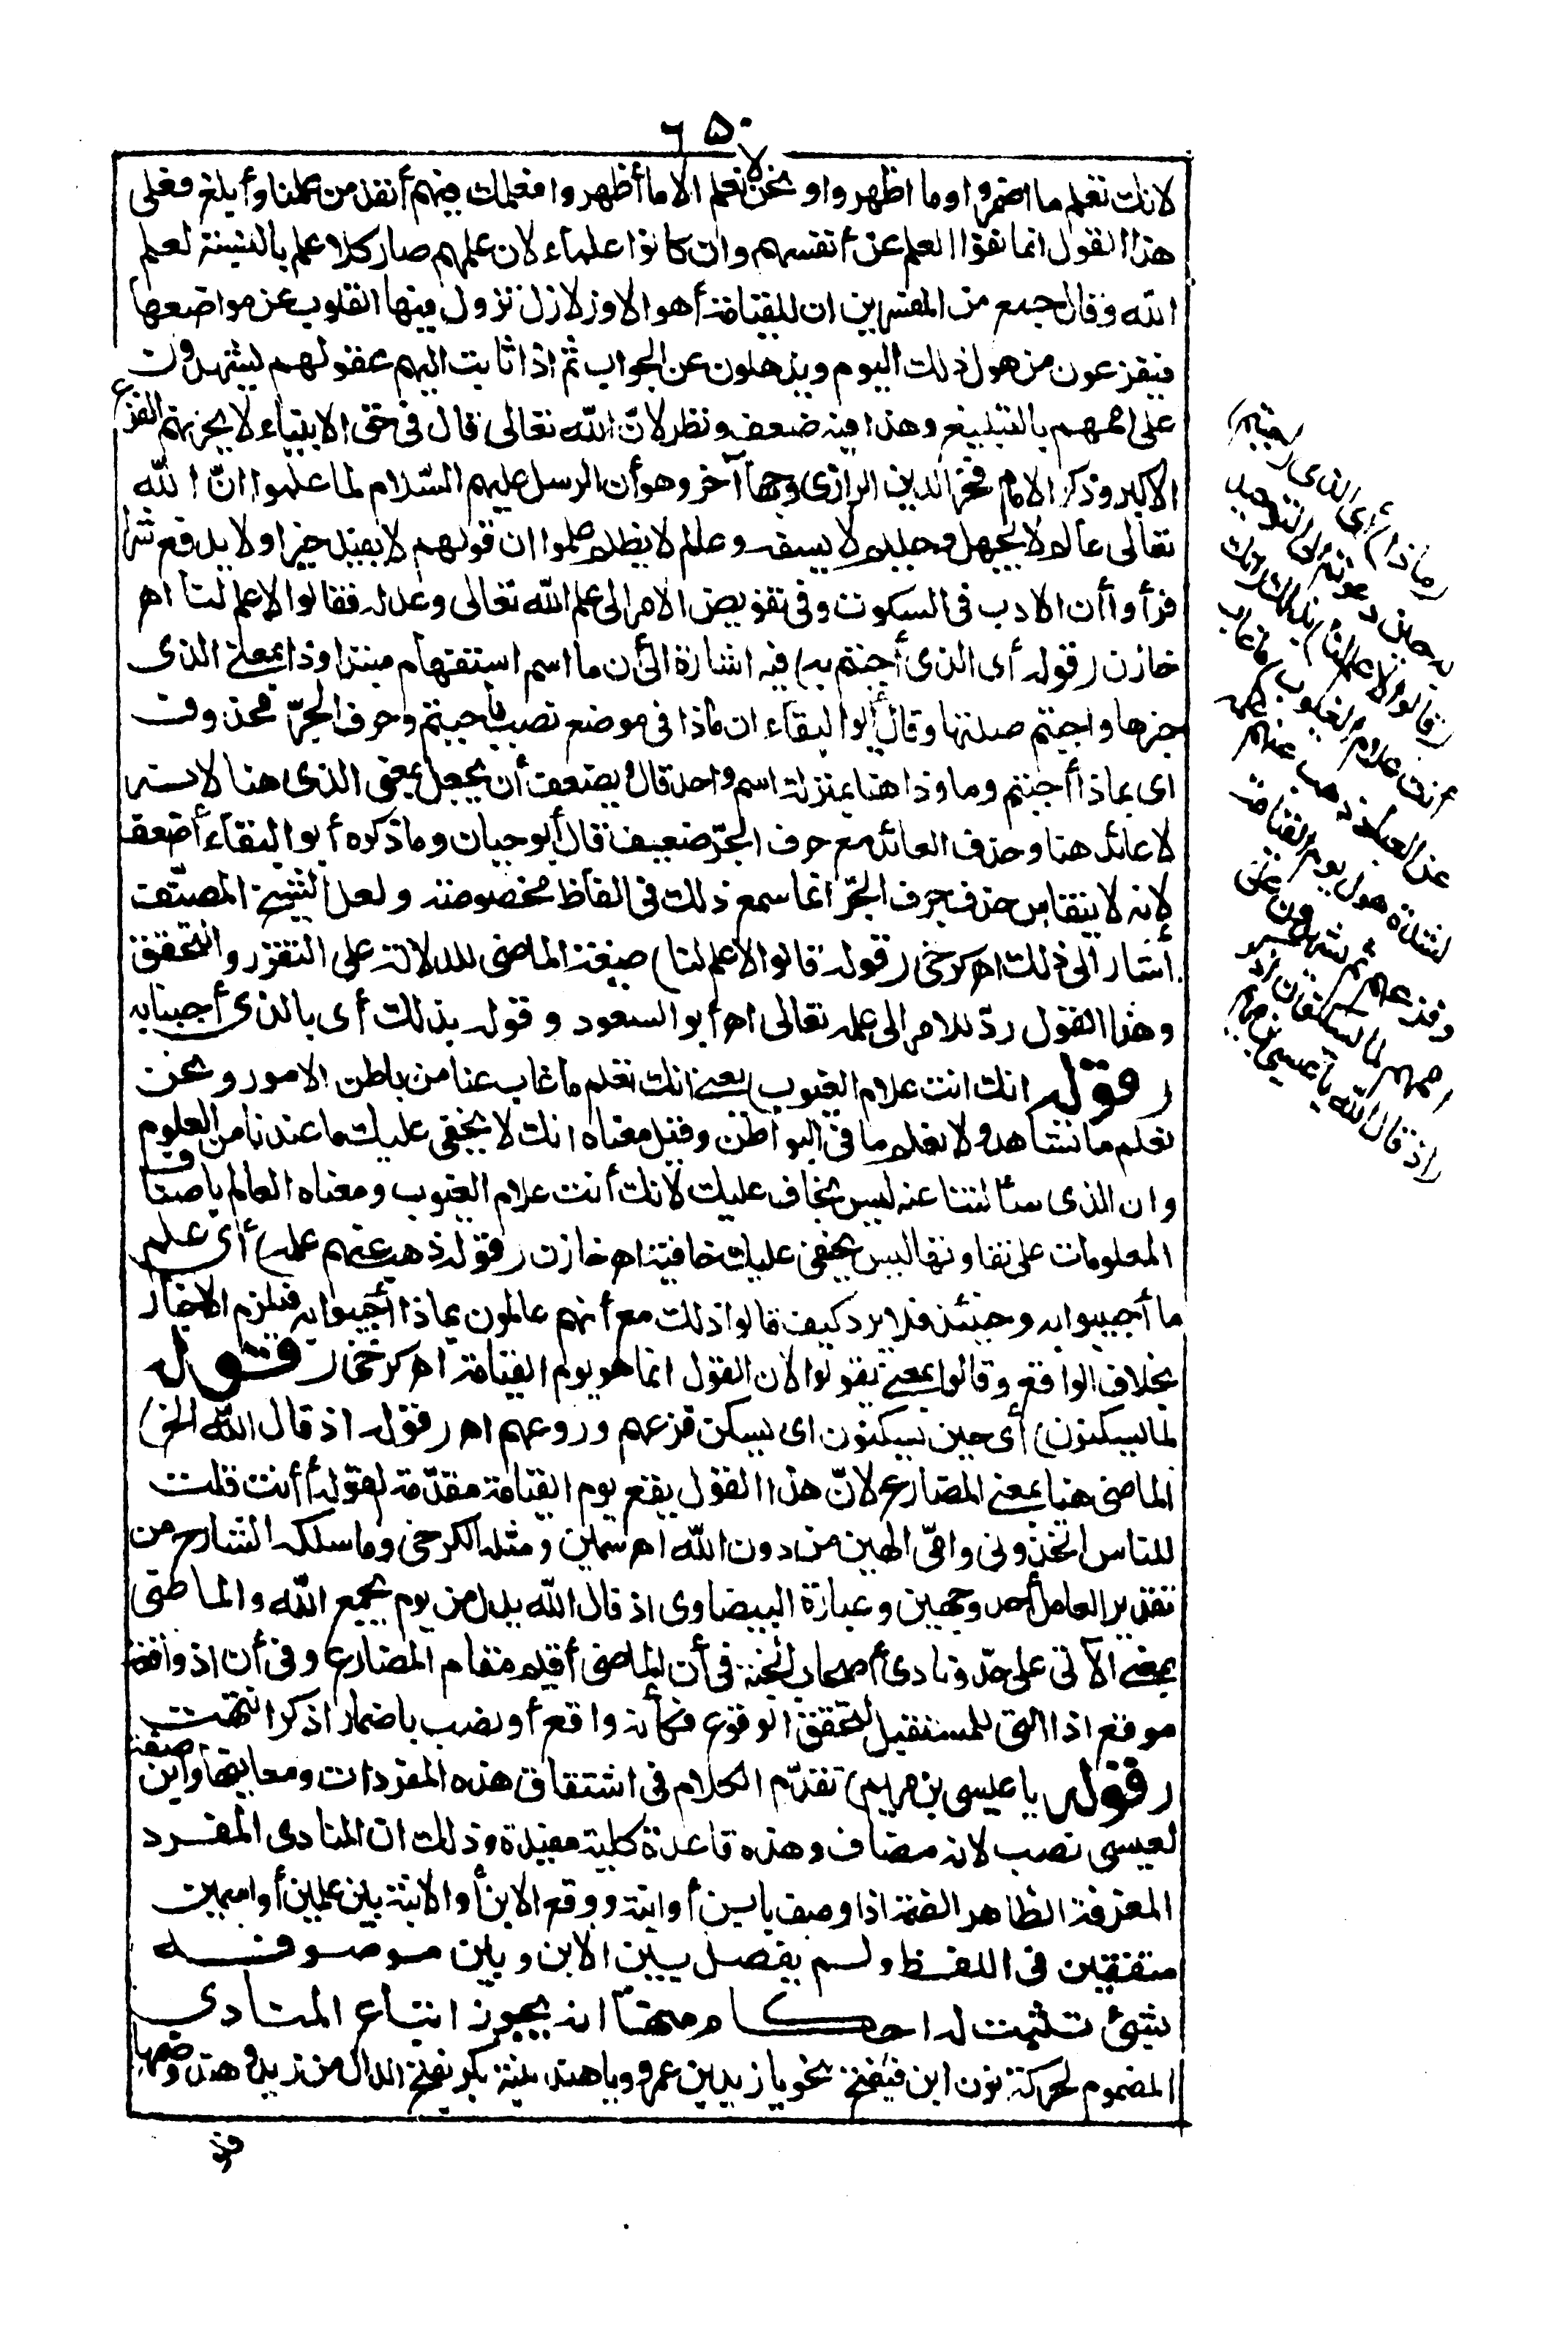 ٦٥٠
لانك تعلم ما اضمروا وما اظهروا ونحن لا نعلم الا ما أظهروا فعلمك فيهم أنفذ من علمنا وأبلغ فعلى
هذا القول انما نفوا العلم عن أنفسهم وان كانوا علماء لان علمهم صار كلا علم بالنسبة لعلم
الله وقال جمع من المفسرين ان للقيامة أهوالا وزلازل تزول فيها القلوب عن مواضعها
فيفزعون من هول ذلك اليوم ويذهلون عن الجواب ثم اذا ثابت اليهم عقولهم يشهدون
على اممهم بالتبليغ وهذا فيه ضعف ونظر لانّ الله تعالى قال فى حق الانبياء لا يحزنهم الفزع
الاكبر وذكر الامام فخر الدين الرازى وجها آخر وهو أن الرسل عليهم السّلام لما علموا انّ الله
تعالى عالم لا يجهل وحليم لا يسفه وعالم لا يظلم علموا ان قولهم لا يفيد خيرا ولا يدفع شرا
فرأوا أن الادب فى السكوت وفى تفويض الامر الى علم الله تعالى وعدله فقالوا لا علم لنا اهـ
خازن (قوله أى الذى أجبتم به) فيه اشارة الى أن ما اسم استفهام مبتدا وذا بمعنى الذى
خبرها واجبتم صلتها وقال أبوالبقاء ان ماذا فى موضع نصب بأجبتم وحرف الجرّ محذوف
اى بماذا أجبتم وما وذا هنا بمنزلة اسم واحد قال ويضعف أن يجعل بمعنى الذى هنا لانه
لا عائد هنا وحذف العائد مع حرف الجرّ ضعيف قال أبوحيان وما ذكره أبو البقاء أضعف
لانه لا ينقاس حذف حرف الجرّ انما سمع ذلك فى الفاظ مخصوصة ولعل الشيخ المصنّف
أشار الى ذلك اهـ كرخى (قوله قالوا لا علم لنا) صيغة الماضى للدلالة على التقرّر والتحقق
وهذا القول ردّ للامر الى علمه تعالى اهـ أبو السعود وقوله بذلك أى بالذى أجبنا به
(قوله انك انت علام الغيوب) يعنى انك تعلم ما غاب عنا من باطن الامور ونحن
نعلم ما نشاهد ولا نعلم ما فى البواطن وقيل معناه انك لا يخفى عليك ما عندنا من العلوم
وان الذى سألتنا عنه ليس بخاف عليك لانك أنت علام الغيوب ومعناه العالم باصناف
المعلومات على تفاوتها ليس يخفى عليك خافية اهـ خازن (قوله ذهب عنهم علمه) أى علم
ما أجيبوا به وحينئذ فلا يرد كيف قالوا ذلك مع أنهم عالمون بماذا أجيبوا به فيلزم الاخبار
بخلاف الواقع وقالوا بمعنى يقولوا لان القول انما هو يوم القيامة اهـ كرخى (قوله
لما يسكنون) أى حين يسكنون اى يسكن فزعهم وروعهم اهـ (قوله اذ قال الله الخ)
الماضى هنا بمعنى المضارع لانّ هذا القول يقع يوم القيامة مقدّمة لقوله أأنت قلت
للناس اتخذونى وامّى الهين من دون الله اهـ سمين ومثله الكرخى وما سلكه الشارح من
تقدير العامل أحد وجهين وعبارة البيضاوى اذ قال الله بدل من يوم يجمع الله والماضى
بمعنى الآتى على حدّ ونادى أصحاب الجنة فى أن الماضى أقيم مقام المضارع وفى أن اذ واقعة
موقع اذا التى للمستقبل لتحقق الوقوع فكأنه واقع أو نصب باضمار اذكر انتهت
(قوله يا عيسى بن مريم) تقدّم الكلام فى اشتقاق هذه المفردات ومعانيها وابن صفة
لعيسى نصب لانه مضاف وهذه قاعدة كلية مفيدة وذلك ان المنادى المفرد
المعرفة الظاهر الضمة اذا وصف بابن أو ابنة ووقع الابن أو الابنة بين علمين أو اسمين
متفقين فى اللفظ ولم يفصل بين الابن وبين موصوفه
بشئ تثبت له احكام منها انه يجوز اتباع المنادى
المضموم لحركة نون ابن فيفتح نحو يا زيد بن عمرو ويا هند ابنة بكر بفتح الدال من زيد وهند وضمها
(ماذا) أى الذى (اجبتم)
به حين دعوتم الى التوحيد
(قالوا لا علم لنا) بذلك (انك
أنت علام الغيوب) ما غاب
عن العباد ذهب عنهم علمه
لشدّة هول يوم القيامة
وفزعهم ثم يشهدون على
اممهم لما يسكنون اذكر
(اذ قال الله يا عيسى بن مريم